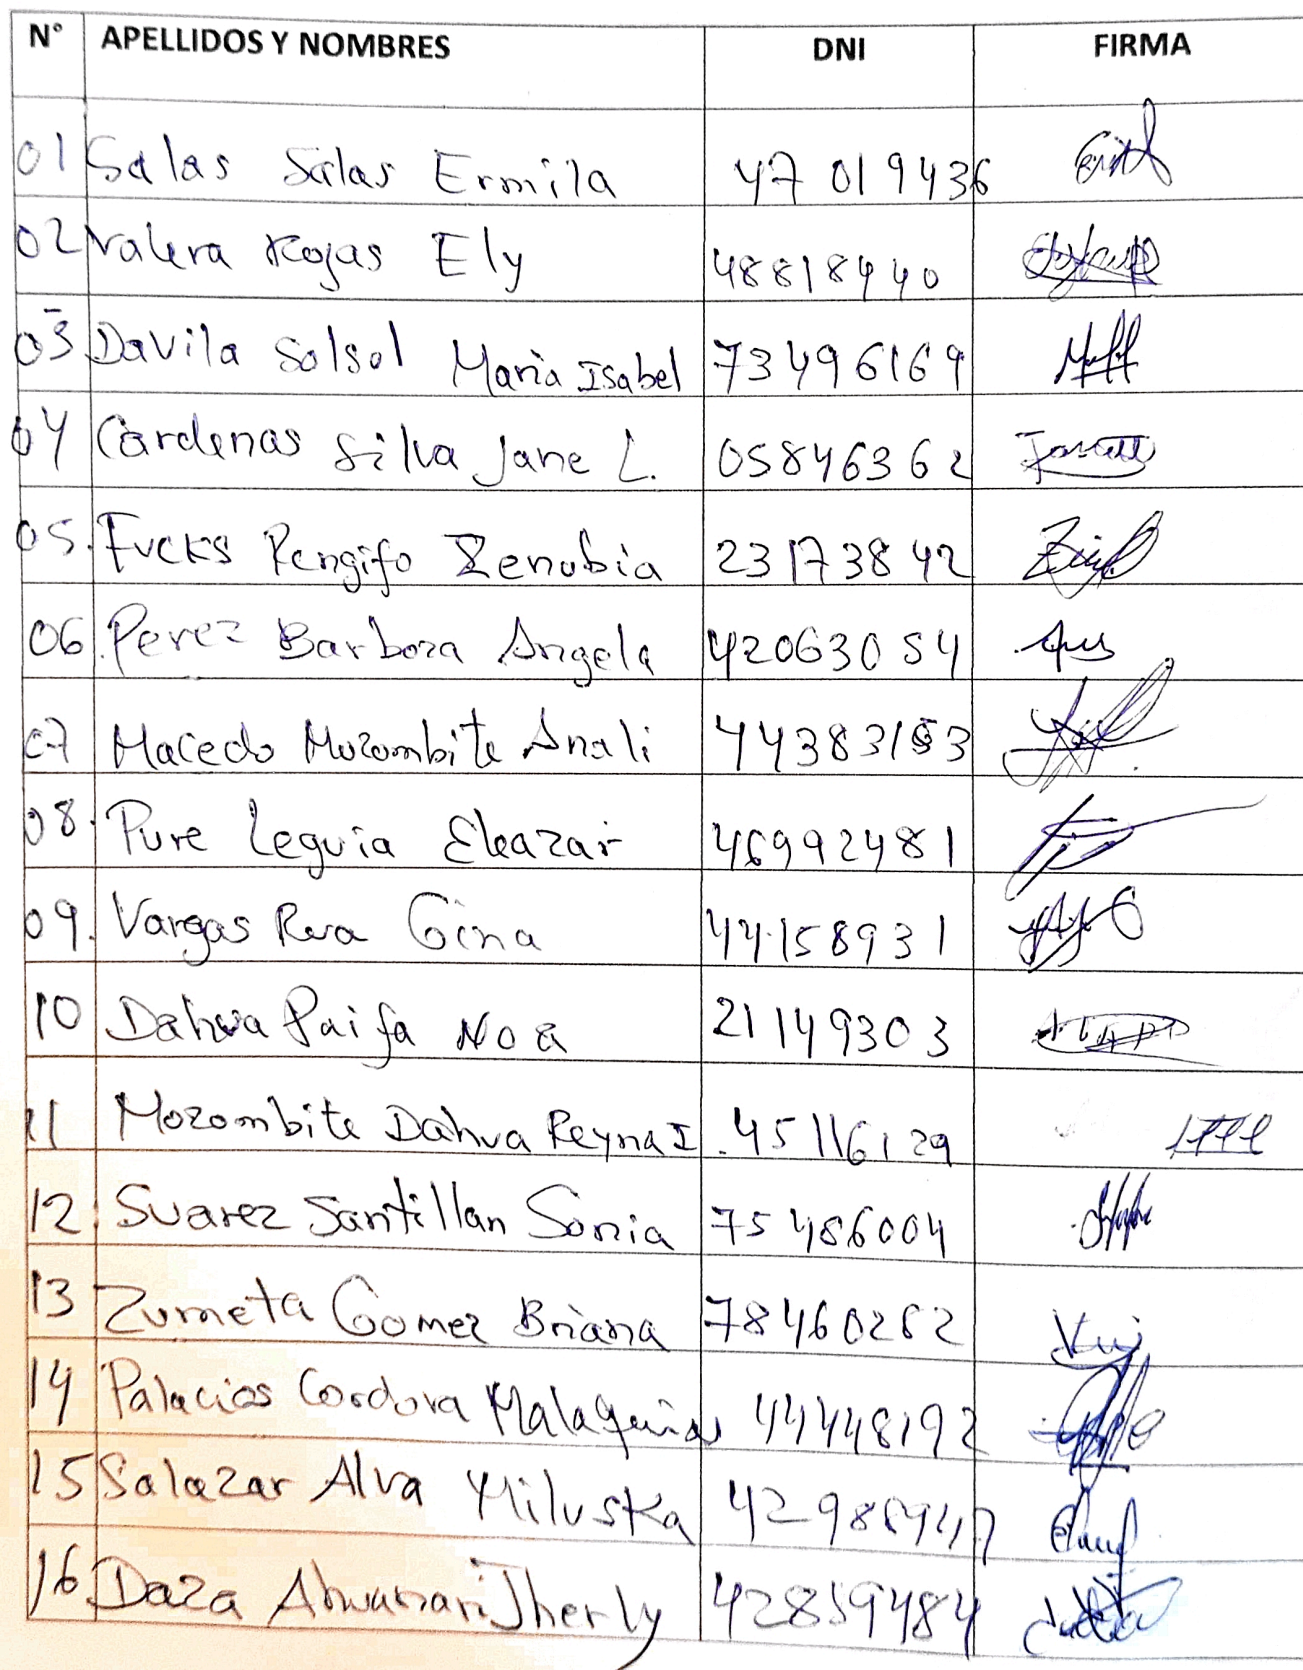 N° APELLIDOS Y NOMBRES DNI FIRMA
01 Salas Salas Ermila 47019436
02 Valera Rojas Ely 48818440
03 Davila Solsol Maria Isabel 73496169
04 Cardenas Silva Jane L. 05846362
05. Fucks Rengifo Zenubia 23173842
06. Perez Barboza Angela 42063054
07 Macedo Mozombite Anali 44383153
08. Pure Leguia Eleazar 46992481
09. Vargas Rva Gina 44158931
10 Dahua Paifa Noa 21149303
11 Mozombite Dahua Reyna I. 45116129
12 Suarez Santillan Sonia 75486004
13 Zumeta Gomez Briana 78460262
14 Palacios Cordova Malaquias 44448192
15 Salazar Alva Miluska
16 Daza Ahuanari Jherly 42859484